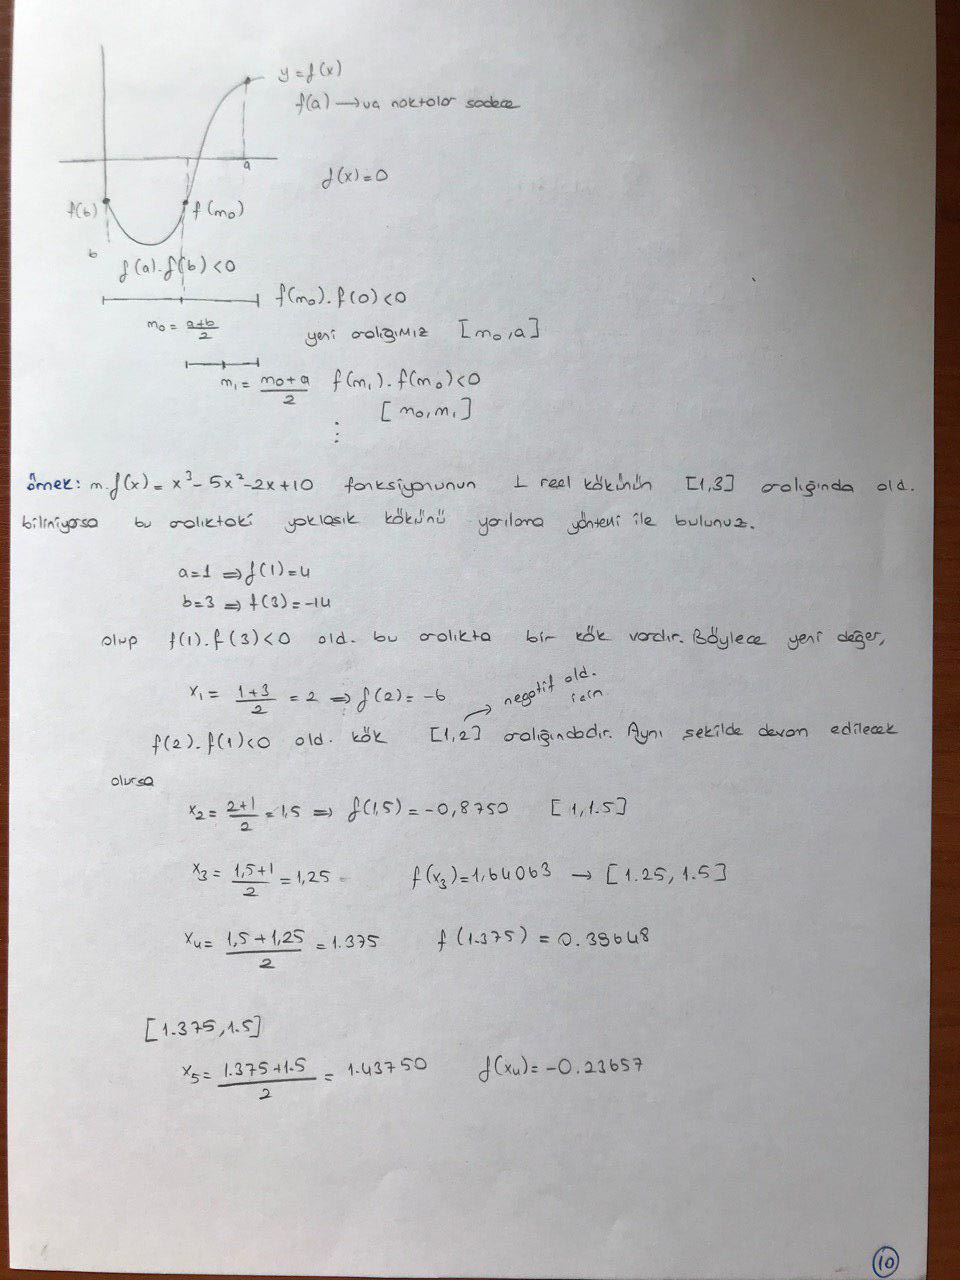 y=f(x)
f(a) → uç noktalar sadece
a
f(x)=0
f(b)
f(m₀)
b
f(a).f(b)<0
f(m₀).f(0)<0
m₀ = a+b/2
yeni aralığımız [m₀,a]
m₁ = m₀+a/2 f(m₁).f(m₀)<0
[m₀,m₁]
⋮
örnek: m.f(x) = x³-5x²-2x+10 fonksiyonunun 1 reel kökünün [1,3] aralığında old.
biliniyorsa bu aralıktaki yaklaşık kökünü yarılama yöntemi ile bulunuz.
a=1 ⇒ f(1)=4
b=3 ⇒ f(3)=-14
olup f(1).f(3)<0 old. bu aralıkta bir kök vardır. Böylece yeni değer,
x₁ = 1+3/2 = 2 ⇒ f(2)=-6
negatif old.
için
f(2).f(1)<0 old. kök [1,2] aralığındadır. Aynı şekilde devam edilecek
olursa
x₂ = 2+1/2 = 1,5 ⇒ f(1,5) = -0,8750 [1,1.5]
x₃ = 1,5+1/2 = 1,25 f(x₃)=1,64063 → [1.25, 1.5]
x₄ = 1,5+1,25/2 = 1.375 f(1.375) = 0.39648
[1.375,1.5]
x₅ = 1.375+1.5/2 = 1.43750 f(x₄)=-0.23657
10